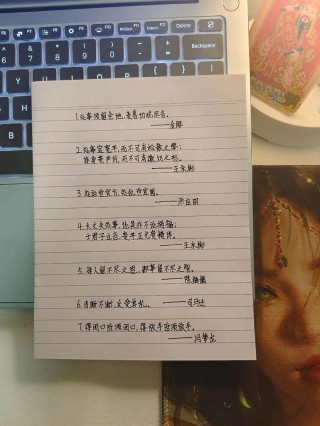 Home
End
PrtScn
Insert
Delete
Backspace
1.处事须留余地,责善切戒尽言。
——金缨
2.处事宜宽平,而不可有松散之弊;
持身贵严厉,而不可有激切之形。
——王永彬
3.处治世宜方,处乱世宜圆。
4.大丈夫处事,论是非不论祸福;
士君子立言,贵平正尤贵精详。
——王永彬
5.待人留不尽之恩,御事留不尽之智。
6.当断不断,反受其乱。——司马迁
7.得闭口时须闭口,得放手时须放手。
——冯梦龙